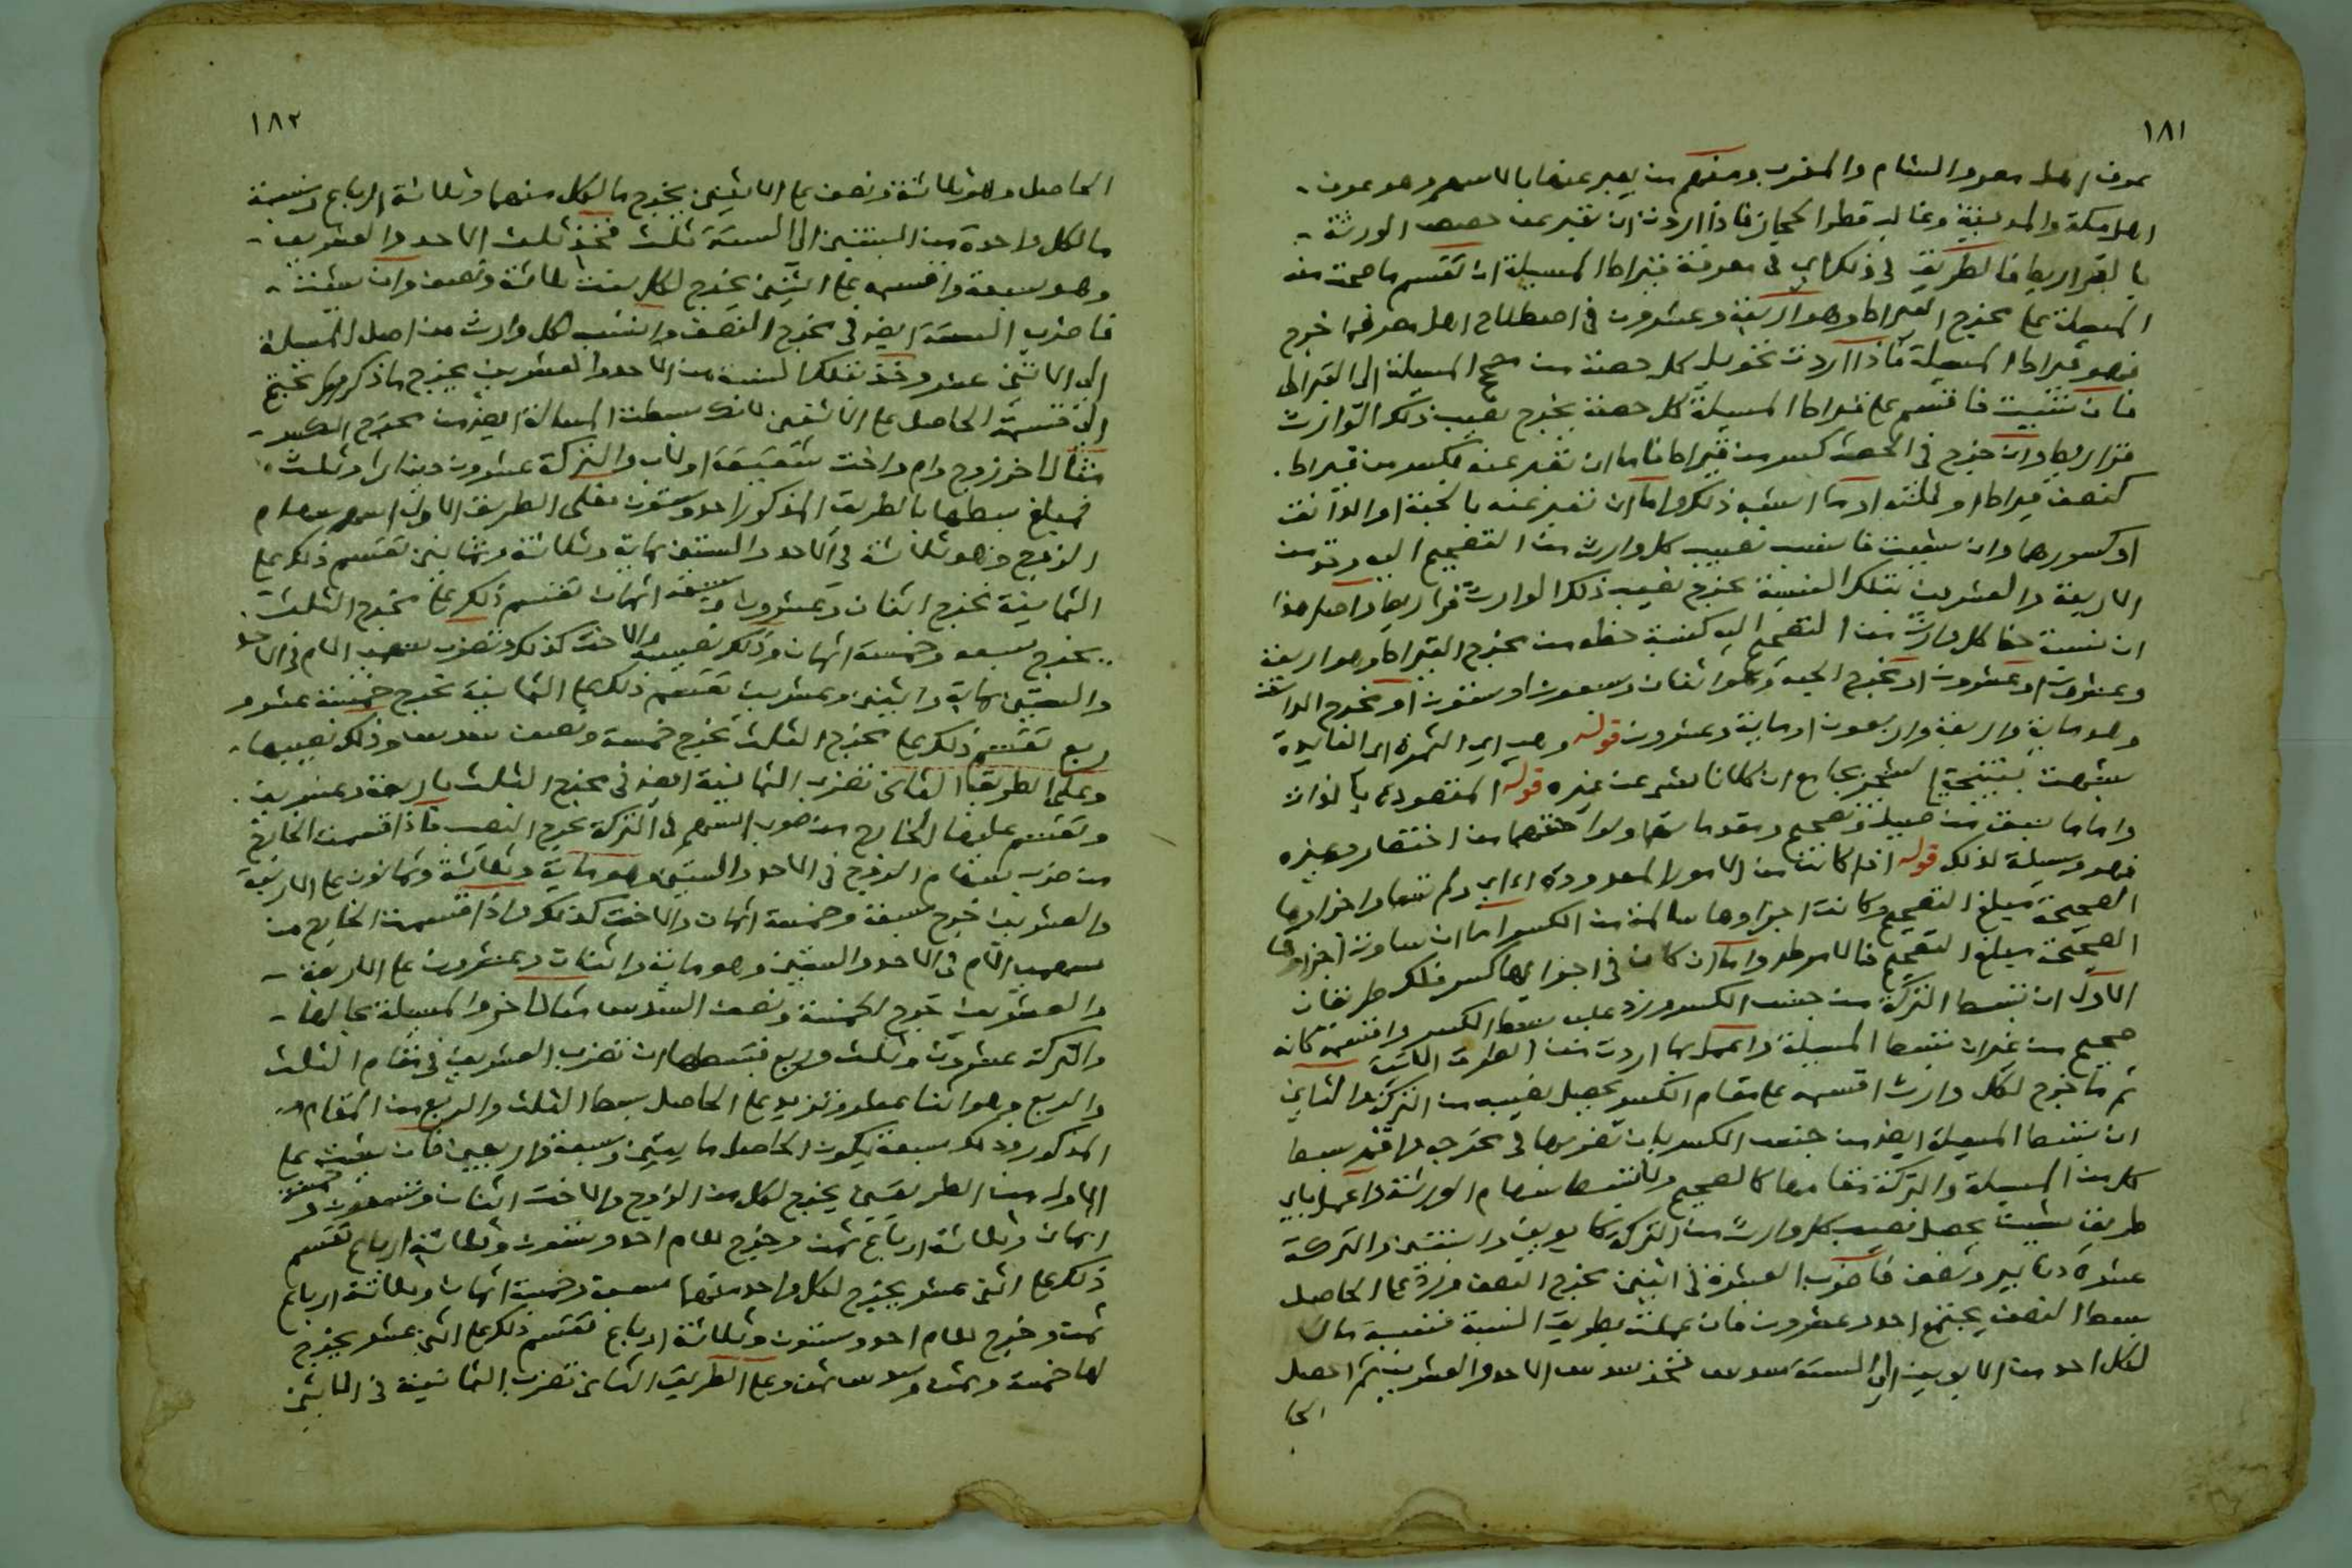 ١٨١
عرف اهل مصر والشام والمغرب ومنهم من يعبر عنها بالاسهم وهو عرف
اهل مكة والمدينة وغالب قطر الحجاز فاذا اردت ان تعبر عن حصص الورثة
بالقراريط فالطريق في ذلك اي في معرفة قيراط المسيلة ان تقسم ما صحت منه
المسيلة على مخرج القيراط وهو اربعة وعشرون في اصطلاح اهل مصر فما خرج
فهو قيراط المسيلة فاذا اردت تحويل كل حصة من مصحح المسيلة الى القيراط
فان شئت فاقسم على قيراط المسيلة كل حصة يخرج نصيب ذلك الوارث
قراريط وان خرج في الحصة كسر من قيراط فاما ان تعبر عنه بكسر من قيراط
كنصف قيراط او ثلثه او ما اشبه ذلك واما ان تعبر عنه بالحبة او الدانق
او كسورهما وان شئت فانسب نصيب كل وارث من التصحيح اليه وخذ من
الاربعة والعشرين بتلك النسبة يخرج نصيب ذلك الوارث قراريط واصل هذا
ان نسبة حظ كل وارث من التصحيح اليه كنسبة حظه من مخرج القيراط وهو اربعة
وعشرون او عشرون او مخرج الحبة وهو اثنان وسبعون او ستون او مخرج الدانق
وهو ماية واربعة واربعون او ماية وعشرون قوله وهي اي الثمرة اي الفايدة
شبهت بنتيجة الشجر بجامع ان كلا ناشئ عن غيره قوله المقصودة بالذات
واما ما سبق من تاصيل وتصحيح ومقدماتهما ولواحقهما من اختصار وغيره
فهو وسيلة لذلك قوله اذا كانت من الامور المعدودة اي اي ولم تتساو اجزاوها
الصحيحة مبلغ التصحيح وكانت اجزاوها سالمة من الكسر اما ان ساوت اجزاوها
الصحيحة مبلغ التصحيح فالامر ظاهر واما ان كان في اجزايها كسر فلك طريقان
الاول ان تبسط التركة من جنس الكسر وزد عليه بسط الكسر واقسمه كانه
صحيح من غير ان تبسط المسيلة واعمل بما اردت من الطرق الاتية
ثم ما خرج لكل وارث اقسمه على مقام الكسر يحصل نصيبه من التركة والثاني
ان تبسط المسيلة ايضا من جنس الكسر بان تضربها في مخرجه واقم بسط
كل من المسيلة والتركة مقامها كالصحيح ولا تبسط سهام الورثة واعمل باي
طريق شيت يحصل نصيب كل وارث من التركة كابوين وابنتين والتركة
عشرة دنانير ونصف فاضرب العشرة في اثنين مخرج النصف وزد على الحاصل
بسط النصف يجتمع احد وعشرون فان عملت بطريق النسبة فنسبة مال
لكل احد من الابوين الى الستة سدس فخذ سدس الاحد والعشرين ثم احصل
الحا
١٨٢
الحاصل وهو ثلاثة ونصف على الاثنين يخرج ما لكل منهما وثلاثة ارباع ونسبة
ما لكل واحدة من البنتين الى الستة ثلث فخذ ثلث الاحد والعشرين
وهو سبعة واقسمه على اثنين يخرج لكل بنت ثلاثة ونصف وان شئت
فاضرب الستة ايضا في مخرج النصف وانسب لكل وارث من اصل المسيلة
الى الاثني عشر وخذ بتلك النسبة من الاحد والعشرين يخرج ما ذكر ولم تحتج
الى قسمة الحاصل على الاثنين لانك بسطت المسالة ايضا من مخرج الكسر
مثال اخر زوج وام واخت شقيقة او لاب والتركة عشرون دينارا وثلث
فمبلغ بسطها بالطريق المذكور احد وستون فعلى الطريق الاول اضرب سهام
الزوج وهو ثلاثة في الاحد والستين بماية وثلاثة وثمانين تقسم ذلك على
الثمانية يخرج اثنان وعشرون وسبعة اثمان تقسم ذلك على مخرج الثلث
يخرج سبعة وخمسة اثمان وذلك نصيبه والاخت كذلك وتضرب سهمي الام في الاحد
والستين بماية واثنين وعشرين تقسم ذلك على الثمانية تخرج خمسة عشر و
ربع تقسم ذلك على مخرج الثلث تخرج خمسة ونصف سدس وذلك نصيبها
وعلى الطريق الثاني تضرب الثمانية ايضا في مخرج الثلث باربعة وعشرين
وتقسم عليها الخارج من ضرب السهم في التركة يخرج النصيب فاذا قسمت الخارج
من ضرب سهام الزوج في الاحد والستين وهو ماية وثلاثة وثمانون على الاربعة
والعشرين خرج سبعة وخمسة اثمان والاخت كذلك واذا قسمت الخارج من
سهمي الام في الاحد والستين وهو ماية واثنان وعشرون على الاربعة
والعشرين خرج الخمسة ونصف السدس مثال اخر والمسيلة بحالها
والتركة عشرون وثلث وربع فبسطها ان تضرب العشرين في مقام الثلث
والربع وهو اثنا عشر وتزيد على الحاصل بسط الثلث والربع من المقام
المذكور وذلك سبعة يكون الحاصل مايتين وسبعة واربعين فان بنيت على
الاول من الطريقين يخرج لكل من الزوج والاخت اثنان وتسعون و خمسة
اثمان وثلاثة ارباع ثمن وخرج للام احد وستون وثلاثة ارباع تقسم
ذلك على اثني عشر يخرج لكل واحد منهما سبعة وخمسة اثمان وثلاثة ارباع
ثمن وخرج للام احد وستون وثلاثة ارباع تقسم ذلك على اثني عشر يخرج
لها خمسة وثمن وسدس ثمن وعلى الطريق الثاني تضرب الثمانية في الاثني